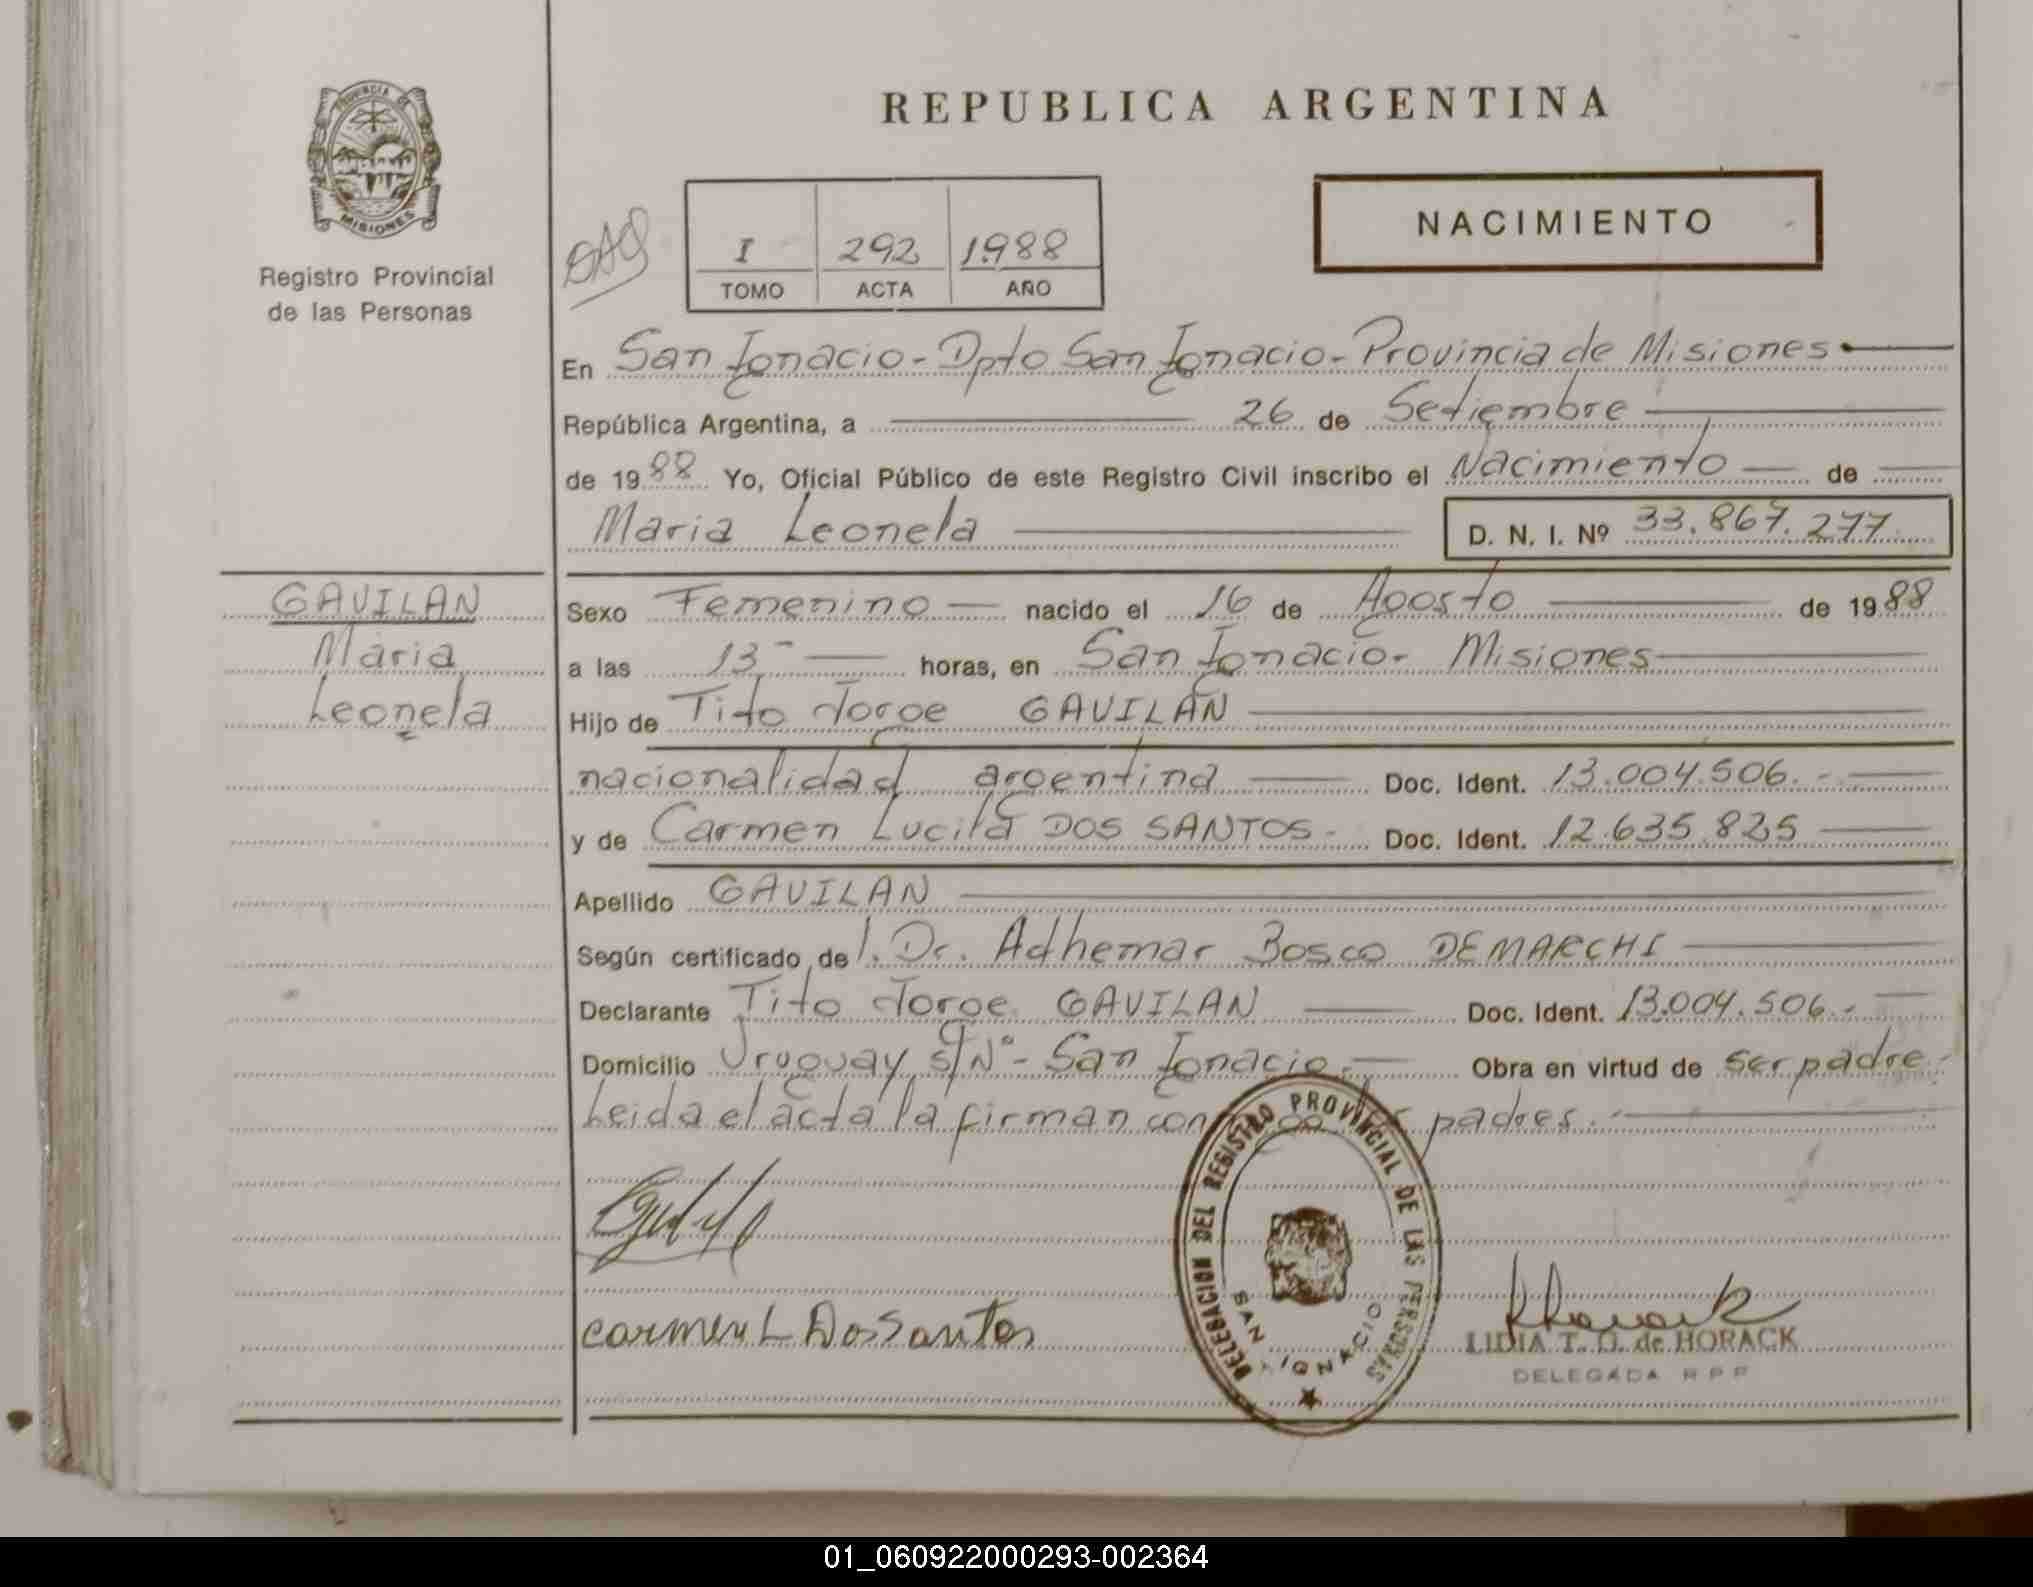 PROVINCIA DE
MISIONES
Registro Provincial
de las Personas
REPUBLICA ARGENTINA
NACIMIENTO
I 292 1988
TOMO ACTA AÑO
En San Ignacio - Dpto San Ignacio - Provincia de Misiones
República Argentina, a 26 de Setiembre
de 1988 Yo, Oficial Público de este Registro Civil inscribo el Nacimiento de
Maria Leonela D. N. I. Nº 33.867.277.
GAVILAN
Maria
Leonela
Sexo Femenino nacido el 16 de Agosto de 1988
a las 13 - horas, en San Ignacio - Misiones
Hijo de Tito Jorge GAVILAN
nacionalidad argentina Doc. Ident. 13.004.506. -
y de Carmen Lucila DOS SANTOS - Doc. Ident. 12.635.825
Apellido GAVILAN
Según certificado de l. Dr. Adhemar Bosco DEMARCHI
Declarante Tito Jorge GAVILAN Doc. Ident. 13.004.506. -
Domicilio Uruguay S/Nº - San Ignacio. - Obra en virtud de ser padre -
Leida el acta la firman con padres. -
DELEGACION DEL REGISTRO PROVINCIAL DE LAS PERSONAS
SAN IGNACIO
carmen L Dos Santos
LIDIA T. G. de HORACK
DELEGADA R P P
01_060922000293-002364